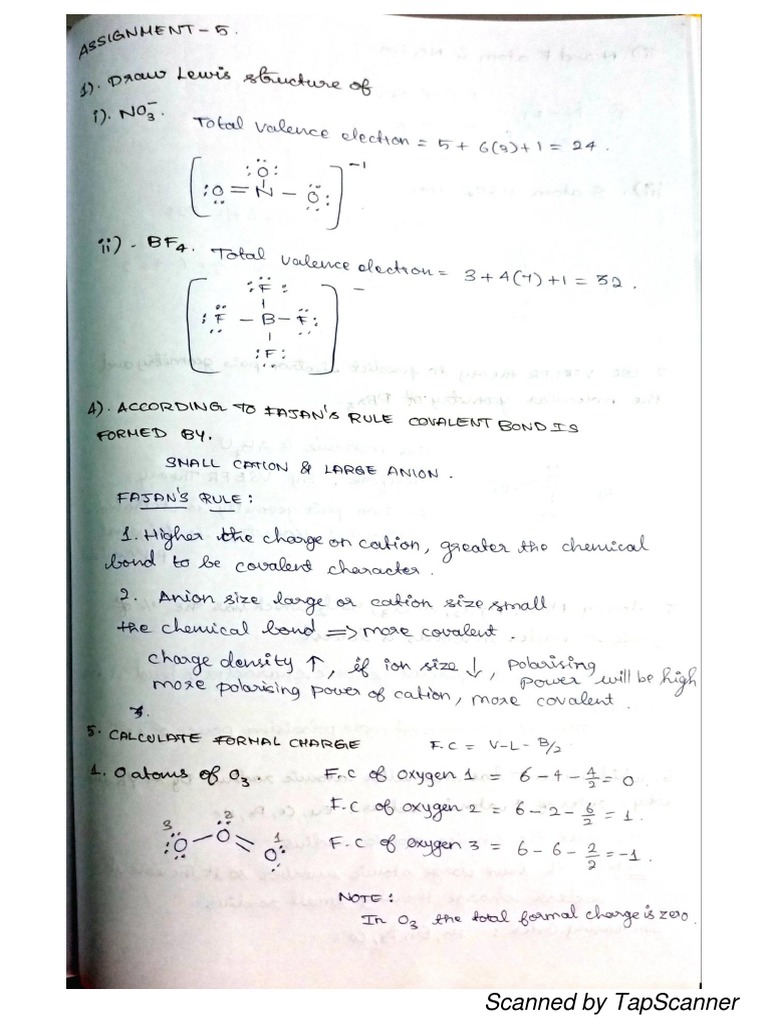 ASSIGNMENT - 5.
1). Draw Lewis structure of
i). NO₃⁻. Total valence electron = 5 + 6(3) + 1 = 24.
:O:
:O = N – O:
-1
ii) - BF₄. Total valence electron = 3 + 4(7) + 1 = 32.
:F:
:F – B – F:
:F:
–
4). ACCORDING TO FAJAN'S RULE COVALENT BOND IS
FORMED BY.
SMALL CATION & LARGE ANION.
FAJAN'S RULE:
1. Higher the charge on cation, greater the chemical
bond to be covalent character.
2. Anion size large or cation size small
the chemical bond => more covalent.
charge density ↑, if ion size ↓, polarising
power will be high
more polarising power of cation, more covalent.
5. CALCULATE FORMAL CHARGE F.C = V-L-B/2
1. O atoms of O₃. F.C of oxygen 1 = 6 - 4 - 4/2 = 0
F.C of oxygen 2 = 6 - 2 - 6/2 = 1.
3 2 1
:O – O = O:
F.C of oxygen 3 = 6 - 6 - 2/2 = -1.
NOTE:
In O₃ the total formal charge is zero.
Scanned by TapScanner